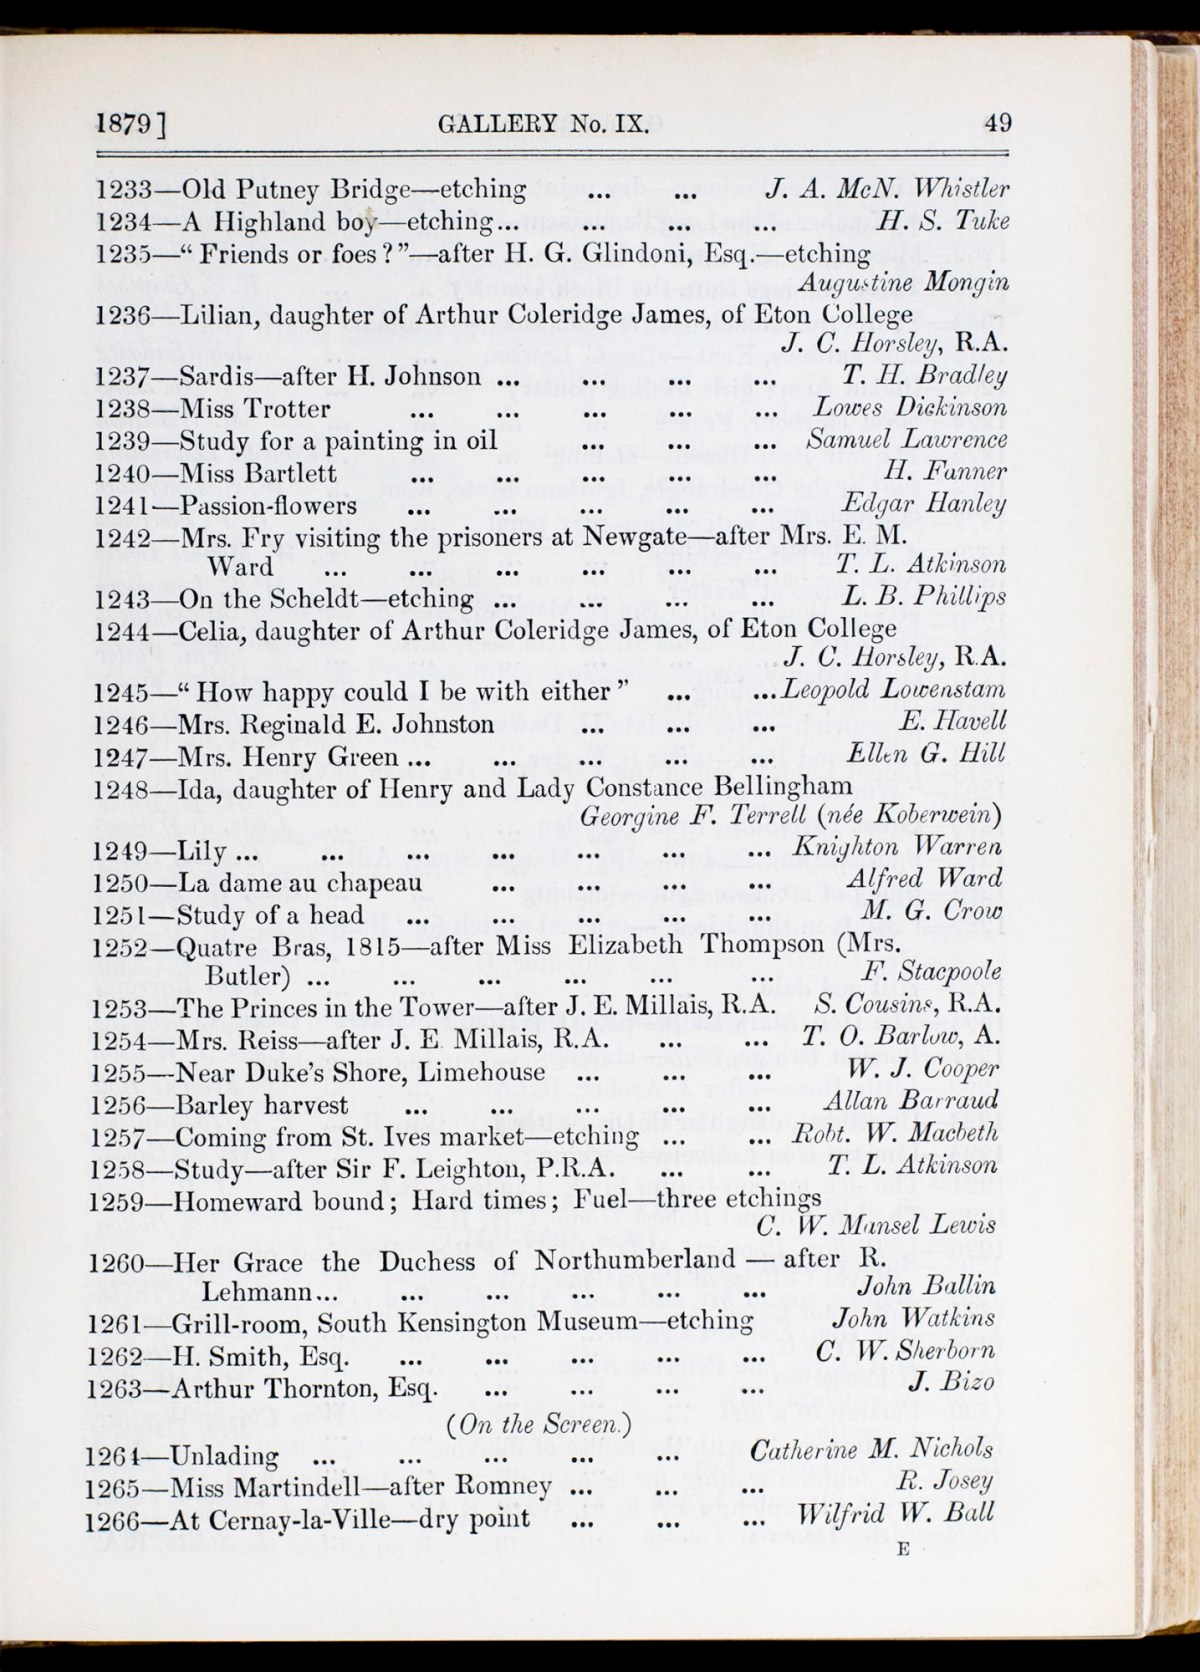 1879] GALLERY No. IX. 49
1233—Old Putney Bridge—etching ... ... J. A. McN. Whistler
1234—A Highland boy—etching... ... ... ... H. S. Tuke
1235—“Friends or foes?”—after H. G. Glindoni, Esq.—etching
Augustine Mongin
1236—Lilian, daughter of Arthur Coleridge James, of Eton College
J. C. Horsley, R.A.
1237—Sardis—after H. Johnson ... ... ... ... T. H. Bradley
1238—Miss Trotter ... ... ... ... ... Lowes Dickinson
1239—Study for a painting in oil ... ... ... Samuel Lawrence
1240—Miss Bartlett ... ... ... ... ... H. Fanner
1241—Passion-flowers ... ... ... ... ... Edgar Hanley
1242—Mrs. Fry visiting the prisoners at Newgate—after Mrs. E. M.
Ward ... ... ... ... ... ... T. L. Atkinson
1243—On the Scheldt—etching ... ... ... ... L. B. Phillips
1244—Celia, daughter of Arthur Coleridge James, of Eton College
J. C. Horsley, R.A.
1245—“How happy could I be with either” ... ...Leopold Lowenstam
1246—Mrs. Reginald E. Johnston ... ... ... E. Havell
1247—Mrs. Henry Green ... ... ... ... ... Ellen G. Hill
1248—Ida, daughter of Henry and Lady Constance Bellingham
Georgine F. Terrell (née Koberwein)
1249—Lily ... ... ... ... ... ... ... Knighton Warren
1250—La dame au chapeau ... ... ... ... Alfred Ward
1251—Study of a head ... ... ... ... ... M. G. Crow
1252—Quatre Bras, 1815—after Miss Elizabeth Thompson (Mrs.
Butler) ... ... ... ... ... ... F. Stacpoole
1253—The Princes in the Tower—after J. E. Millais, R.A. S. Cousins, R.A.
1254—Mrs. Reiss—after J. E. Millais, R.A. ... ... T. O. Barlow, A.
1255—Near Duke’s Shore, Limehouse ... ... ... W. J. Cooper
1256—Barley harvest ... ... ... ... ... Allan Barraud
1257—Coming from St. Ives market—etching ... ... Robt. W. Macbeth
1258—Study—after Sir F. Leighton, P.R.A. ... ... T. L. Atkinson
1259—Homeward bound; Hard times; Fuel—three etchings
C. W. Mansel Lewis
1260—Her Grace the Duchess of Northumberland — after R.
Lehmann... ... ... ... ... ... John Ballin
1261—Grill-room, South Kensington Museum—etching John Watkins
1262—H. Smith, Esq. ... ... ... ... ... C. W. Sherborn
1263—Arthur Thornton, Esq. ... ... ... ... J. Bizo
(On the Screen.)
1264—Unlading ... ... ... ... ... Catherine M. Nichols
1265—Miss Martindell—after Romney ... ... ... R. Josey
1266—At Cernay-la-Ville—dry point ... ... ... Wilfrid W. Ball
E